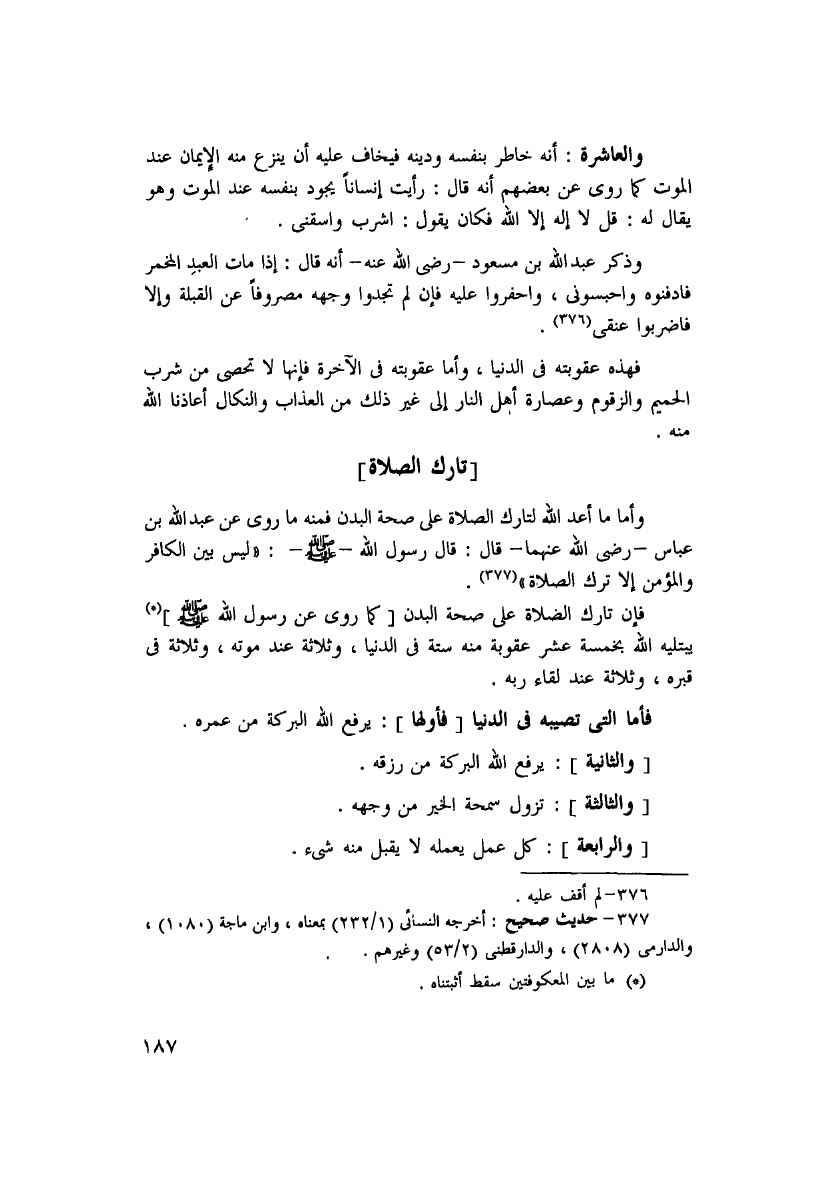 والعاشرة : أنه خاطر بنفسه ودينه فيخاف عليه أن ينزع منه الإيمان عند
الموت كما روى عن بعضهم أنه قال : رأيت إنساناً يجود بنفسه عند الموت وهو
يقال له : قل لا إله إلا الله فكان يقول : اشرب واسقنى .
وذكر عبدالله بن مسعود –رضى الله عنه– أنه قال : إذا مات العبد المخمر
فادفنوه واحبسونى ، واحفروا عليه فإن لم تجدوا وجهه مصروفاً عن القبلة وإلا
فاضربوا عنقى(٣٧٦) .
فهذه عقوبته فى الدنيا ، وأما عقوبته فى الآخرة فإنها لا تحصى من شرب
الحميم والزقوم وعصارة أهل النار إلى غير ذلك من العذاب والنكال أعاذنا الله
منه .
[تارك الصلاة]
وأما ما أعد الله لتارك الصلاة على صحة البدن فمنه ما روى عن عبدالله بن
عباس –رضى الله عنهما– قال : قال رسول الله –ﷺ– : «ليس بين الكافر
والمؤمن إلا ترك الصلاة»(٣٧٧) .
فإن تارك الصلاة على صحة البدن [ كما روى عن رسول الله ﷺ ](*)
يبتليه الله بخمسة عشر عقوبة منه ستة فى الدنيا ، وثلاثة عند موته ، وثلاثة فى
قبره ، وثلاثة عند لقاء ربه .
فأما التى تصيبه فى الدنيا [ فأولها ] : يرفع الله البركة من عمره .
[ والثانية ] : يرفع الله البركة من رزقه .
[ والثالثة ] : تزول سمحة الخير من وجهه .
[ والرابعة ] : كل عمل يعمله لا يقبل منه شىء .
٣٧٦–لم أقف عليه .
٣٧٧– حديث صحيح : أخرجه النسائى (٢٣٢/١) بمعناه ، وابن ماجة (١٠٨٠) ،
والدارمى (٢٨٠٨) ، والدارقطنى (٥٣/٢) وغيرهم .
(*) ما بين المعكوفتين سقط أثبتناه .
١٨٧